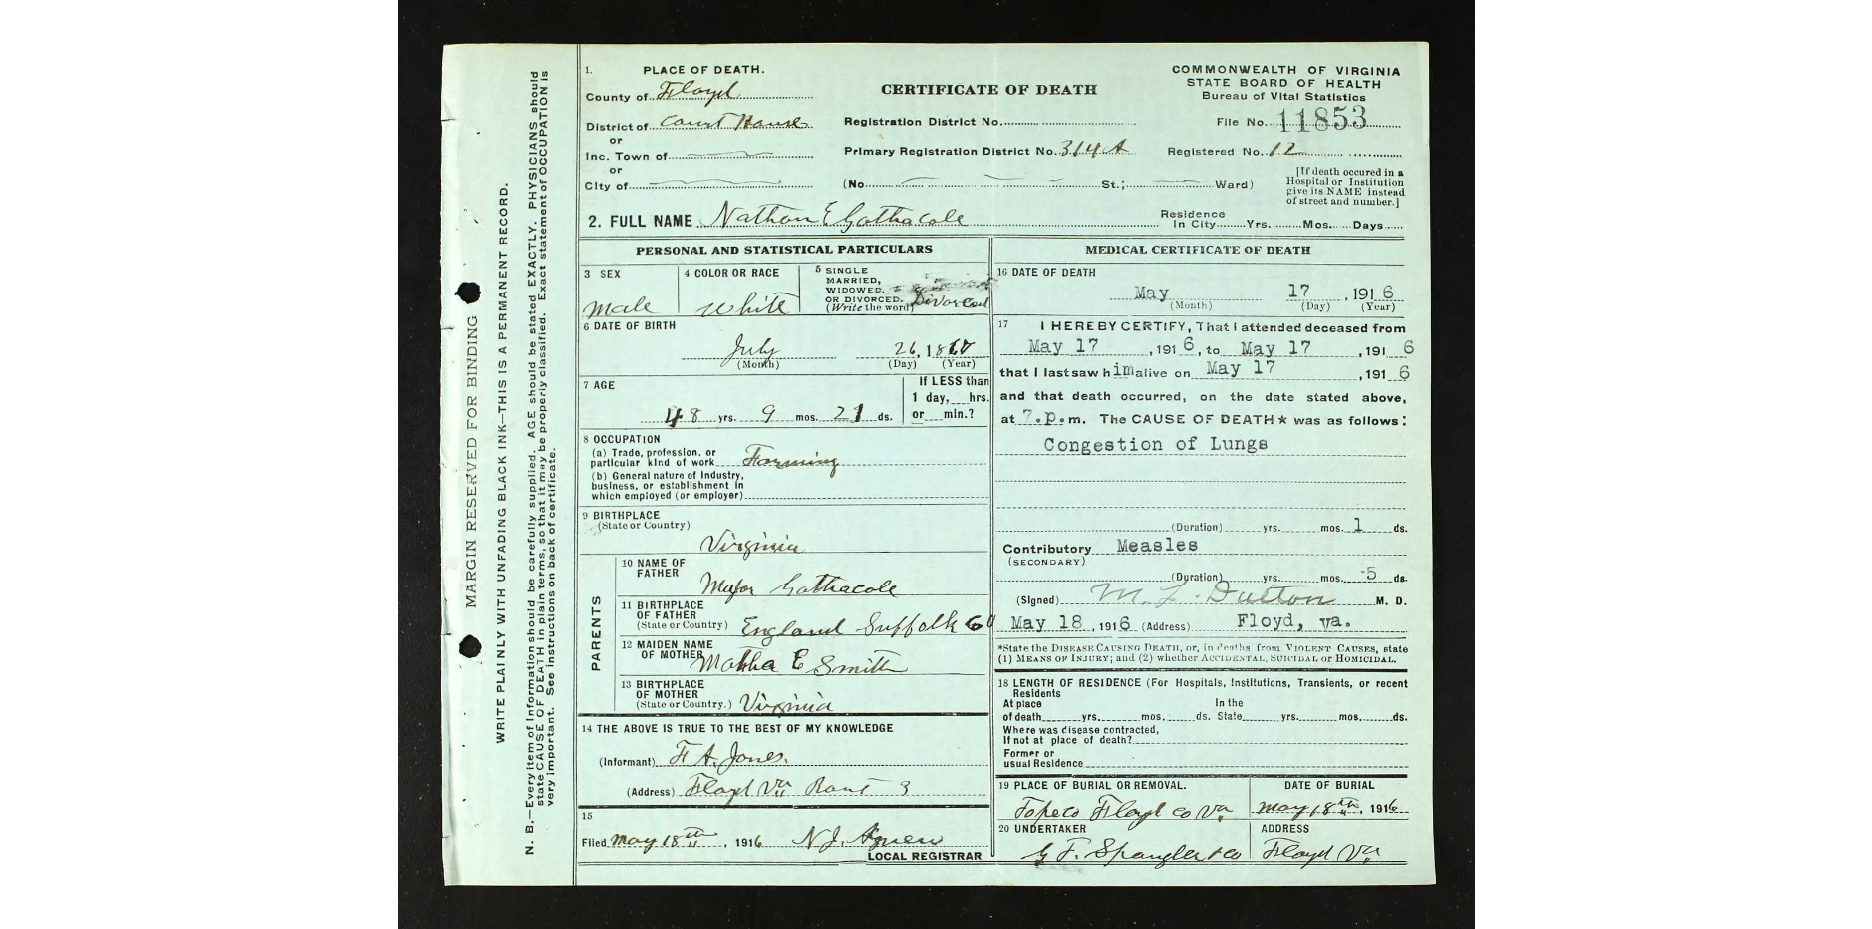 MARGIN RESERVED FOR BINDING
WRITE PLAINLY WITH UNFADING BLACK INK—THIS IS A PERMANENT RECORD.
N. B.—Every item of information should be carefully supplied. AGE should be stated EXACTLY. PHYSICIANS should
state CAUSE OF DEATH in plain terms, so that it may be properly classified. Exact statement of OCCUPATION is
very important. See instructions on back of certificate.
1. PLACE OF DEATH.
County of Floyd
District of Court House
or
Inc. Town of
or
City of
CERTIFICATE OF DEATH
Registration District No.
Primary Registration District No. 314A
(No. St.; Ward)
COMMONWEALTH OF VIRGINIA
STATE BOARD OF HEALTH
Bureau of Vital Statistics
File No. 11853
Registered No. 12
[If death occured in a
Hospital or Institution
give its NAME instead
of street and number.]
2. FULL NAME Nathan E Gothacole
Residence
In City Yrs. Mos. Days
PERSONAL AND STATISTICAL PARTICULARS
3 SEX
Male
4 COLOR OR RACE
White
5 SINGLE
MARRIED,
WIDOWED.
OR DIVORCED.
(Write the word) Divorced
6 DATE OF BIRTH
July 26, 1867
(Month) (Day) (Year)
7 AGE
48 yrs. 9 mos. 21 ds.
If LESS than
1 day, hrs.
or min.?
8 OCCUPATION
(a) Trade, profession, or
particular kind of work Farming
(b) General nature of Industry,
business, or establishment in
which employed (or employer)
9 BIRTHPLACE
(State or Country)
Virginia
PARENTS
10 NAME OF
FATHER
Major Gothacole
11 BIRTHPLACE
OF FATHER
(State or Country) England Suffolk Co
12 MAIDEN NAME
OF MOTHER E Smith
13 BIRTHPLACE
OF MOTHER
(State or Country.) Virginia
14 THE ABOVE IS TRUE TO THE BEST OF MY KNOWLEDGE
(Informant) F A. Jones.
(Address) Floyd Va Rout 3
15
Filed May 18th, 1916 N J. Agnew
LOCAL REGISTRAR
MEDICAL CERTIFICATE OF DEATH
16 DATE OF DEATH
May 17, 1916
(Month) (Day) (Year)
17 I HEREBY CERTIFY, That I attended deceased from
May 17, 1916, to May 17, 1916
that I last saw him alive on May 17, 1916
and that death occurred, on the date stated above,
at 7.p.m. The CAUSE OF DEATH★ was as follows:
Congestion of Lungs
(Duration) yrs. mos. 1 ds.
Contributory Measles
(SECONDARY)
(Duration) yrs. mos. 5 ds.
(Signed) M. L. Dutton M. D.
May 18, 1916 (Address) Floyd, va.
*State the DISEASE CAUSING DEATH, or, in deaths from VIOLENT CAUSES, state
(1) MEANS OF INJURY; and (2) whether ACCIDENTAL, SUICIDAL or HOMICIDAL.
18 LENGTH OF RESIDENCE (For Hospitals, Institutions, Transients, or recent
Residents
At place In the
of death yrs. mos. ds. State yrs. mos. ds.
Where was disease contracted,
If not at place of death?
Former or
usual Residence
19 PLACE OF BURIAL OR REMOVAL.
Topeco Floyd co Va
DATE OF BURIAL
May 18th, 1916
20 UNDERTAKER
G F. Spangler & co
ADDRESS
Floyd Va